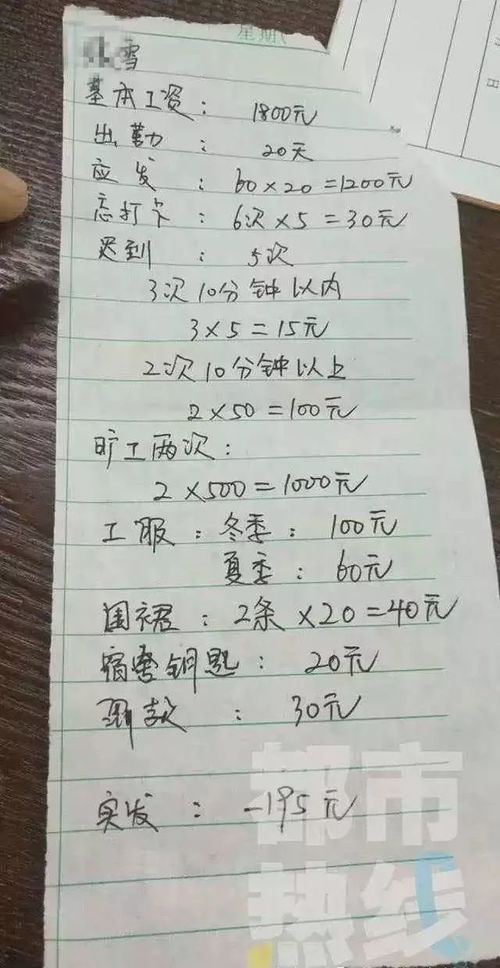 星期
雪
基本工资： 1800元
出勤： 20天
应发： 60×20=1200元
忘打卡： 6次×5=30元
迟到： 5次
3次10分钟以内
3×5=15元
2次10分钟以上
2×50=100元
旷工两次：
2×500=1000元
工服：冬季： 100元
夏季： 60元
围裙：2条×20=40元
宿舍钥匙： 20元
款： 30元
实发： -195元
都市
热线